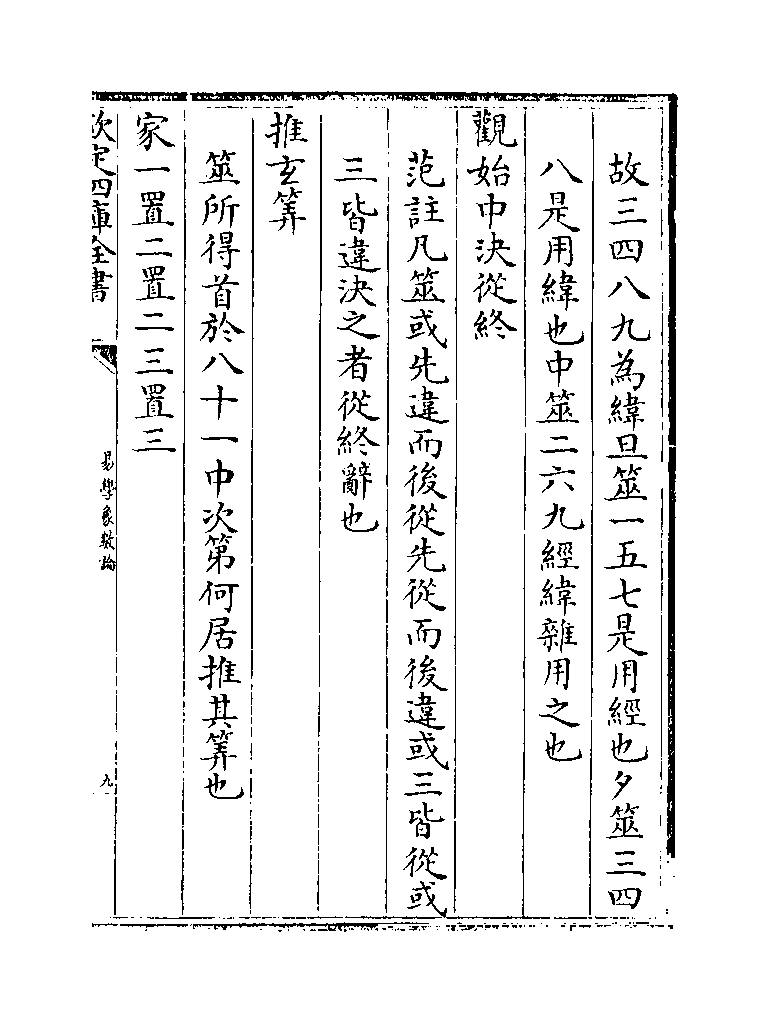 故三四八九為緯旦筮一五七是用經也夕筮三四
八是用緯也中筮二六九經緯雜用之也
觀始中決從終
范註凡筮或先違而後從先從而後違或三皆從或
三皆違決之者從終辭也
推玄筭
筮所得首於八十一中次第何居推其筭也
家一置二置二三置三
欽定四庫全書
易學象數論
九